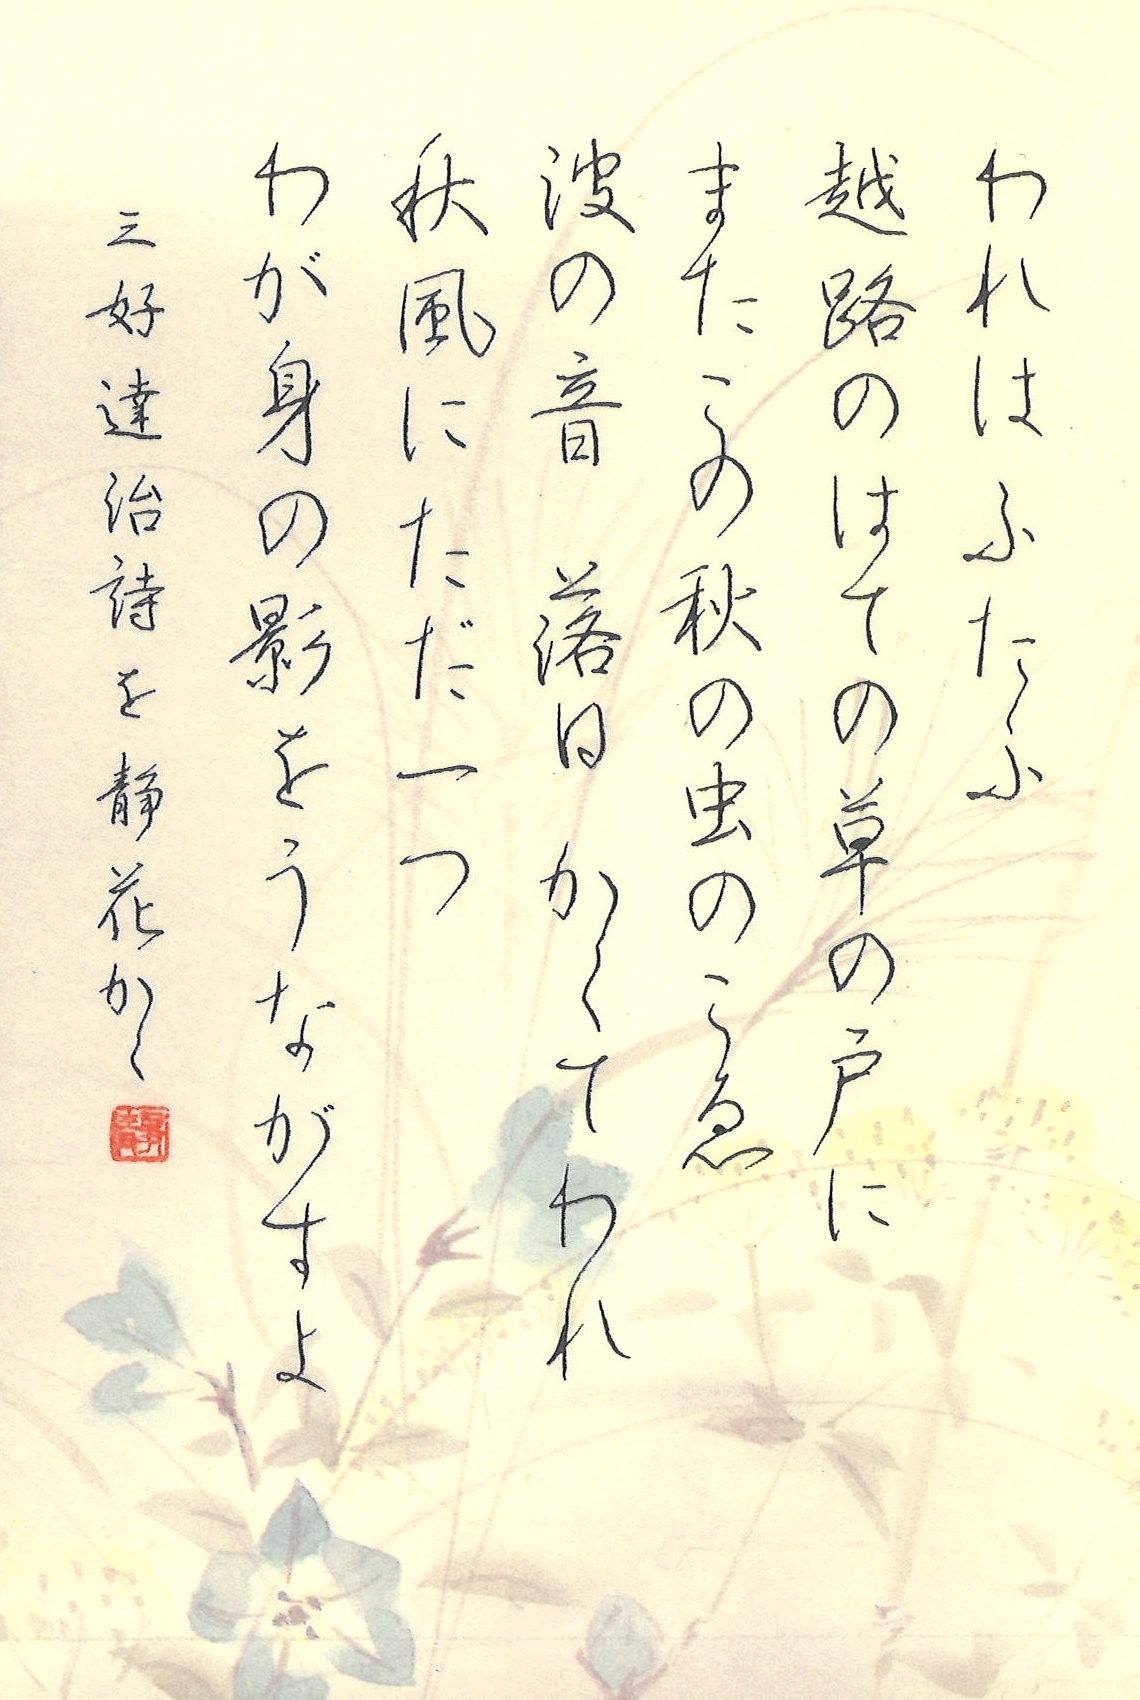 われはふたたふ
越路のはての草の戸に
またこの秋の虫のこゑ
波の音 落日 かくてわれ
秋風にただ一つ
わが身の影をうながすよ
三好達治詩を静花かく
靜